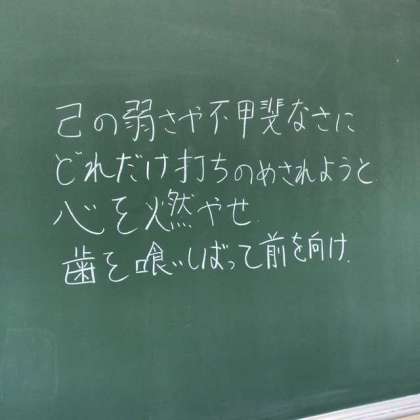 己の弱さや不甲斐なさに
どれだけ打ちのめされようと
心を燃やせ.
歯を喰いしばって前を向け.